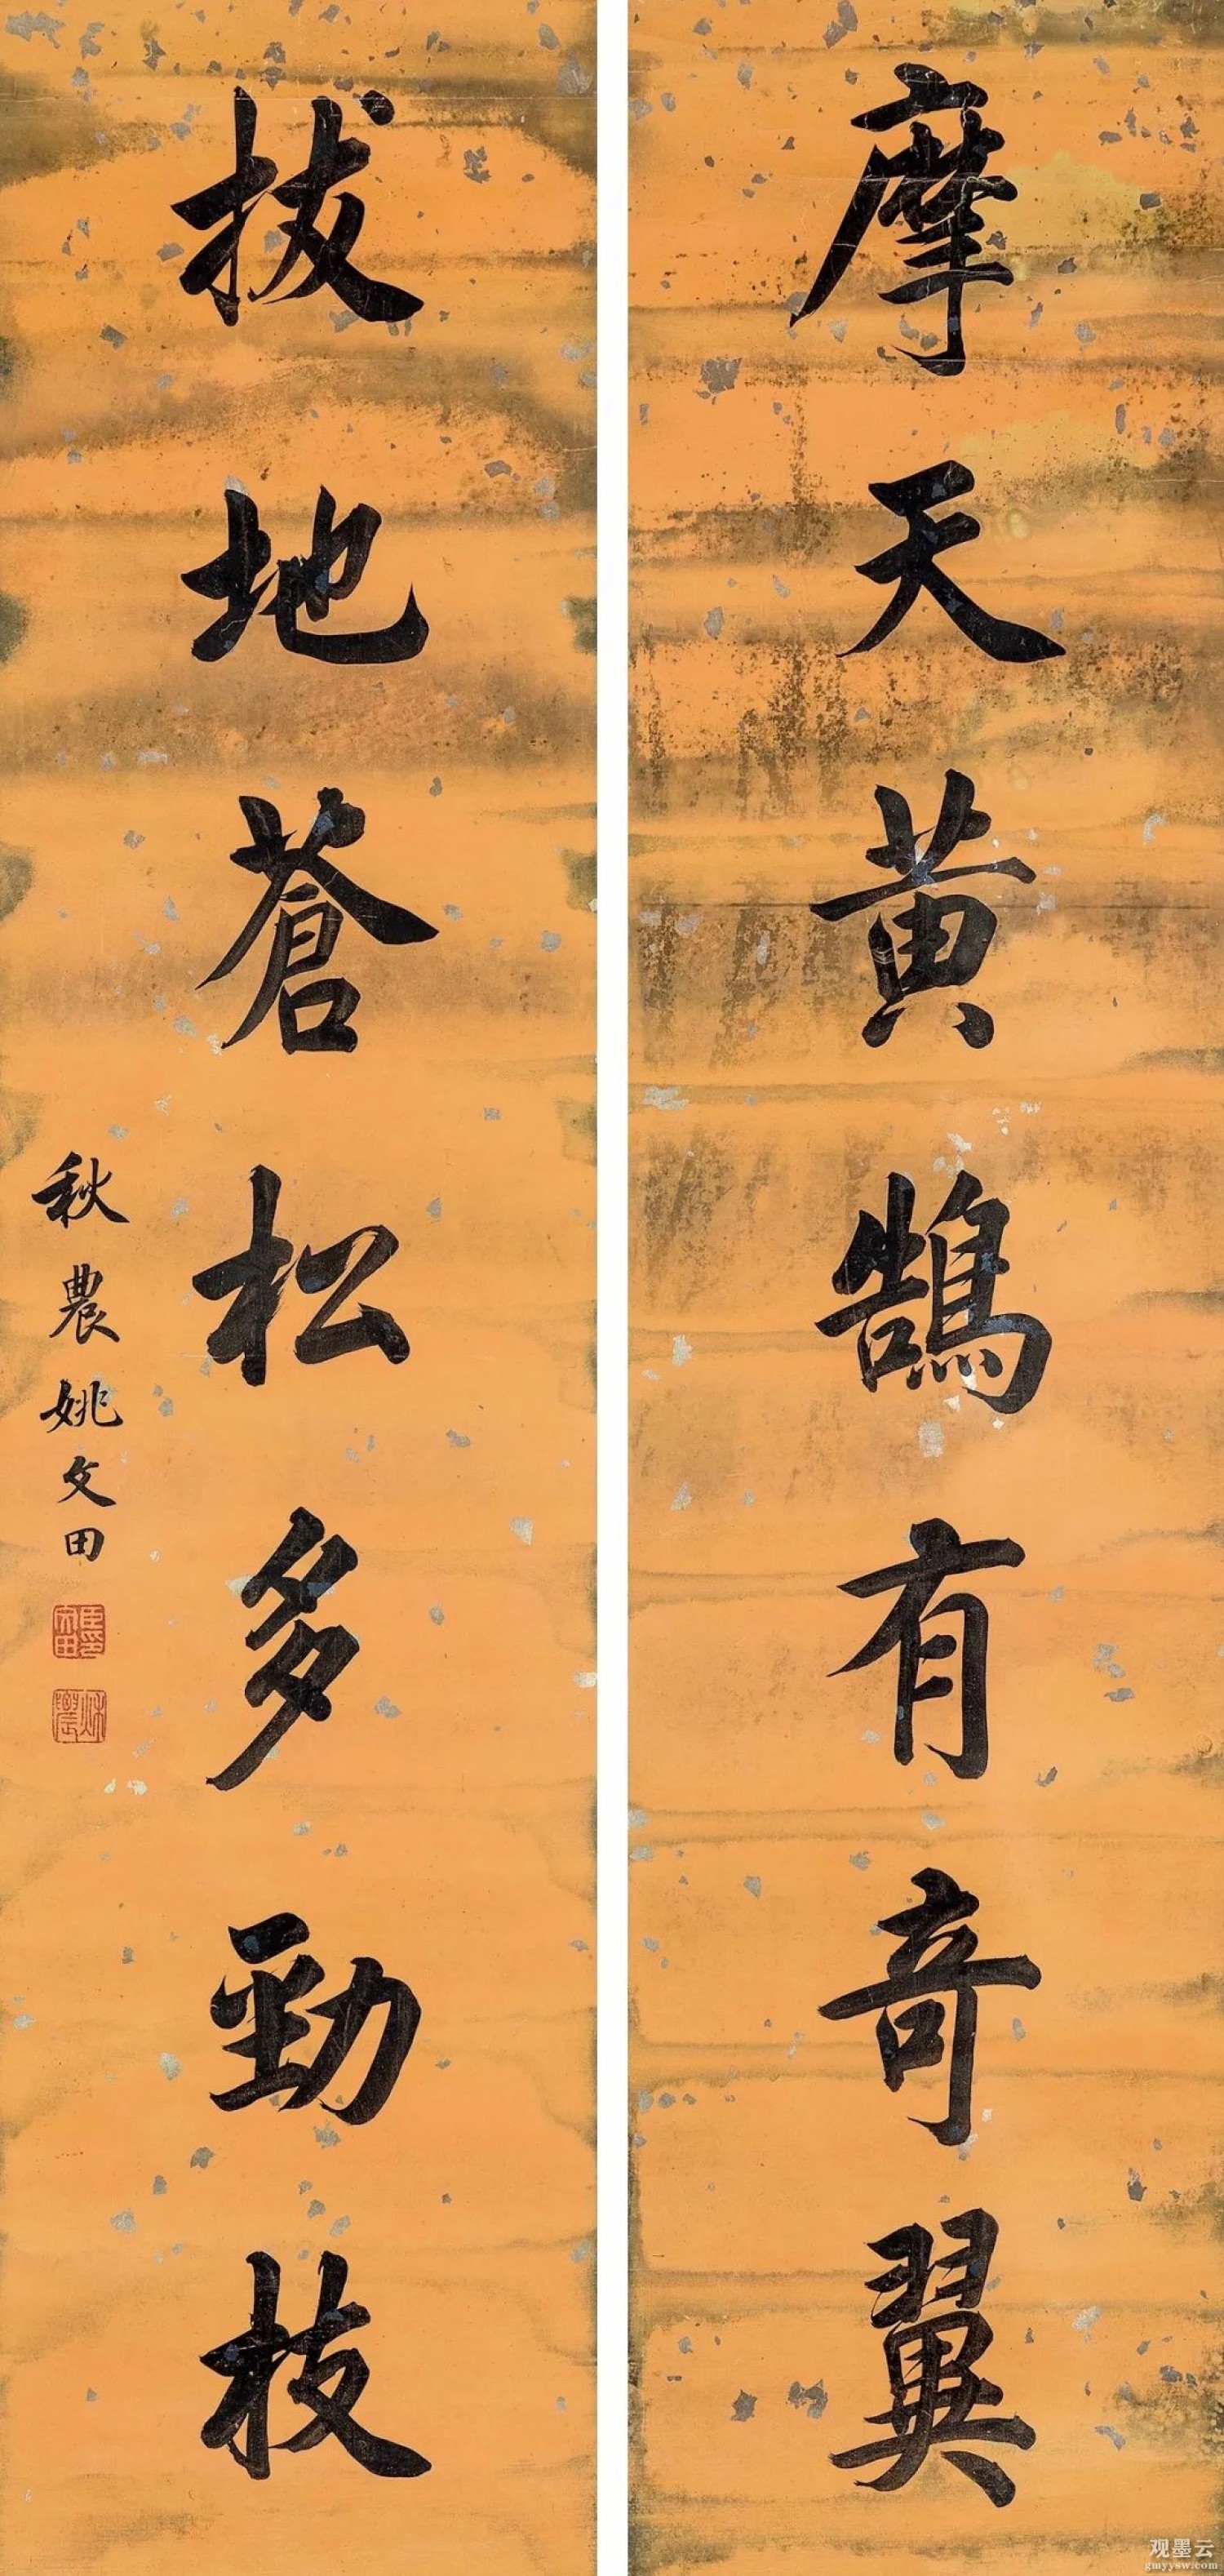 摩天黄鵠有奇翼
拔地蒼松多勁枝
秋農姚文田
观墨云
gmyysw.com